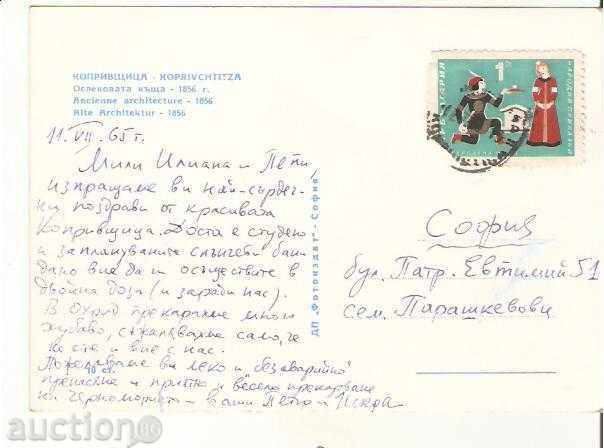 КОПРИВЩИЦА - KOPRIVCHTITZA
Ослековата къща - 1856 г.
Ancienne architecture - 1856
Alte Architektur - 1856
11. VII. 65 г.
Мили Илиана и Пепи,
изпращаме ви най-сърдеч-
ни поздрави от красивата
Копривщица. Доста е студено
и запланираните слънчеви бани
дано вие да ги осъществите в
двойна доза (и заради нас).
В Охрид прекарахме много
хубаво, съжалявахме само, че
не сте и вие с нас.
Пожелаваме ви леко и "безаварийно"
пренасяне и приятно и весело прекарване
на Черноморието - ваши Петьо и Искра
10 ст.
ДП „Фотоиздат" - София
БЪЛГАРИЯ
1 ст
НАРОДНИ ПРИКАЗКИ
София
бул. Патр. Евтимий 51
сем. Парашкевови
auction BG